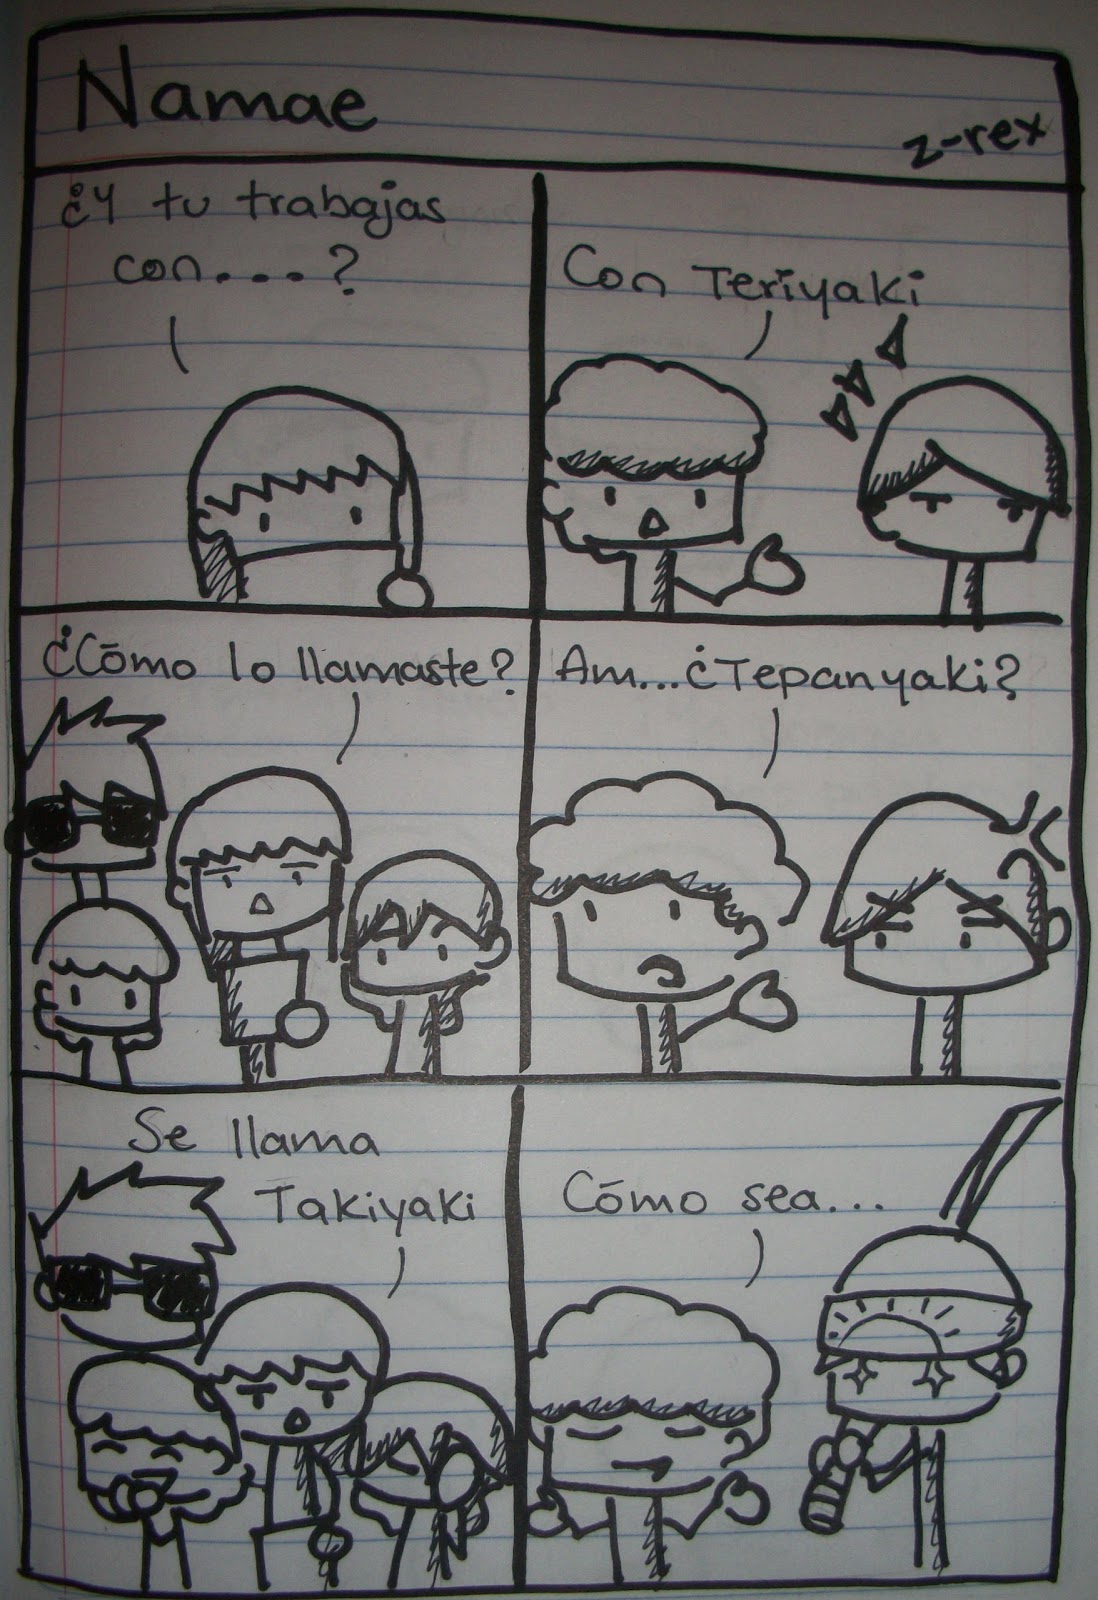 Namae
z-rex
¿Y tu trabajas
con....?
Con Teriyaki
¿Cómo lo llamaste?
Am...¿Tepanyaki?
Se llama
Takiyaki
Cómo sea...